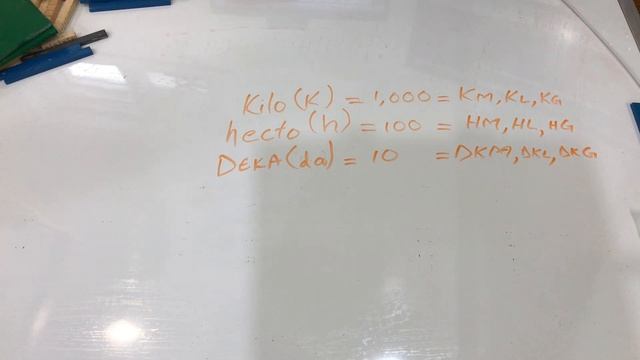 Kilo (K) = 1,000 = KM, KL, KG
hecto (h) = 100 = HM, HL, HG
DEKA (da) = 10 = DKM, DKL, DKG